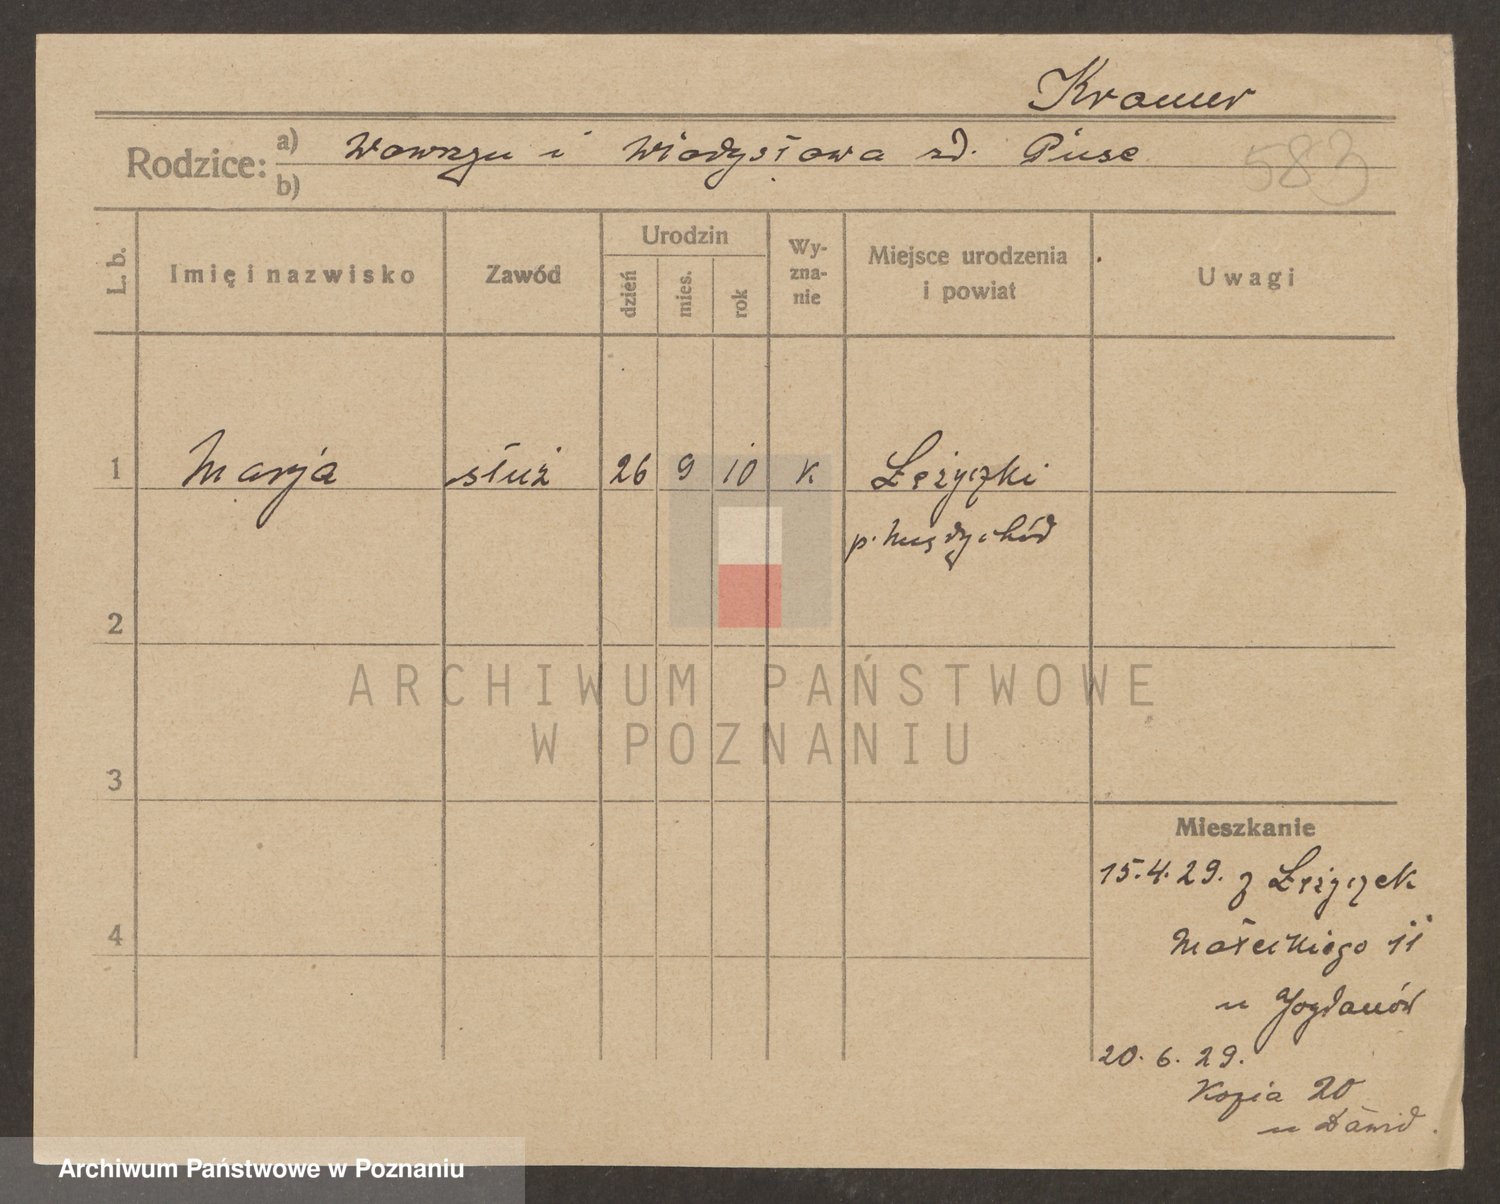 Kramer
Rodzice: a) Wawrzyn i Władysława zd. Piuse
b)
583
L. b.
Imię i nazwisko
Zawód
Urodzin
dzień
mies.
rok
Wy-
zna-
nie
Miejsce urodzenia
i powiat
Uwagi
1 Marja służ 26 9 10 K Łężyczki
p. Międzychód
2
3
4
ARCHIWUM PAŃSTWOWE
W POZNANIU
Mieszkanie
15.4.29. z Łężyczek
Małeckiego 11
u
20.6.29.
Kozia 20
u Dawid.
Archiwum Państwowe w Poznaniu